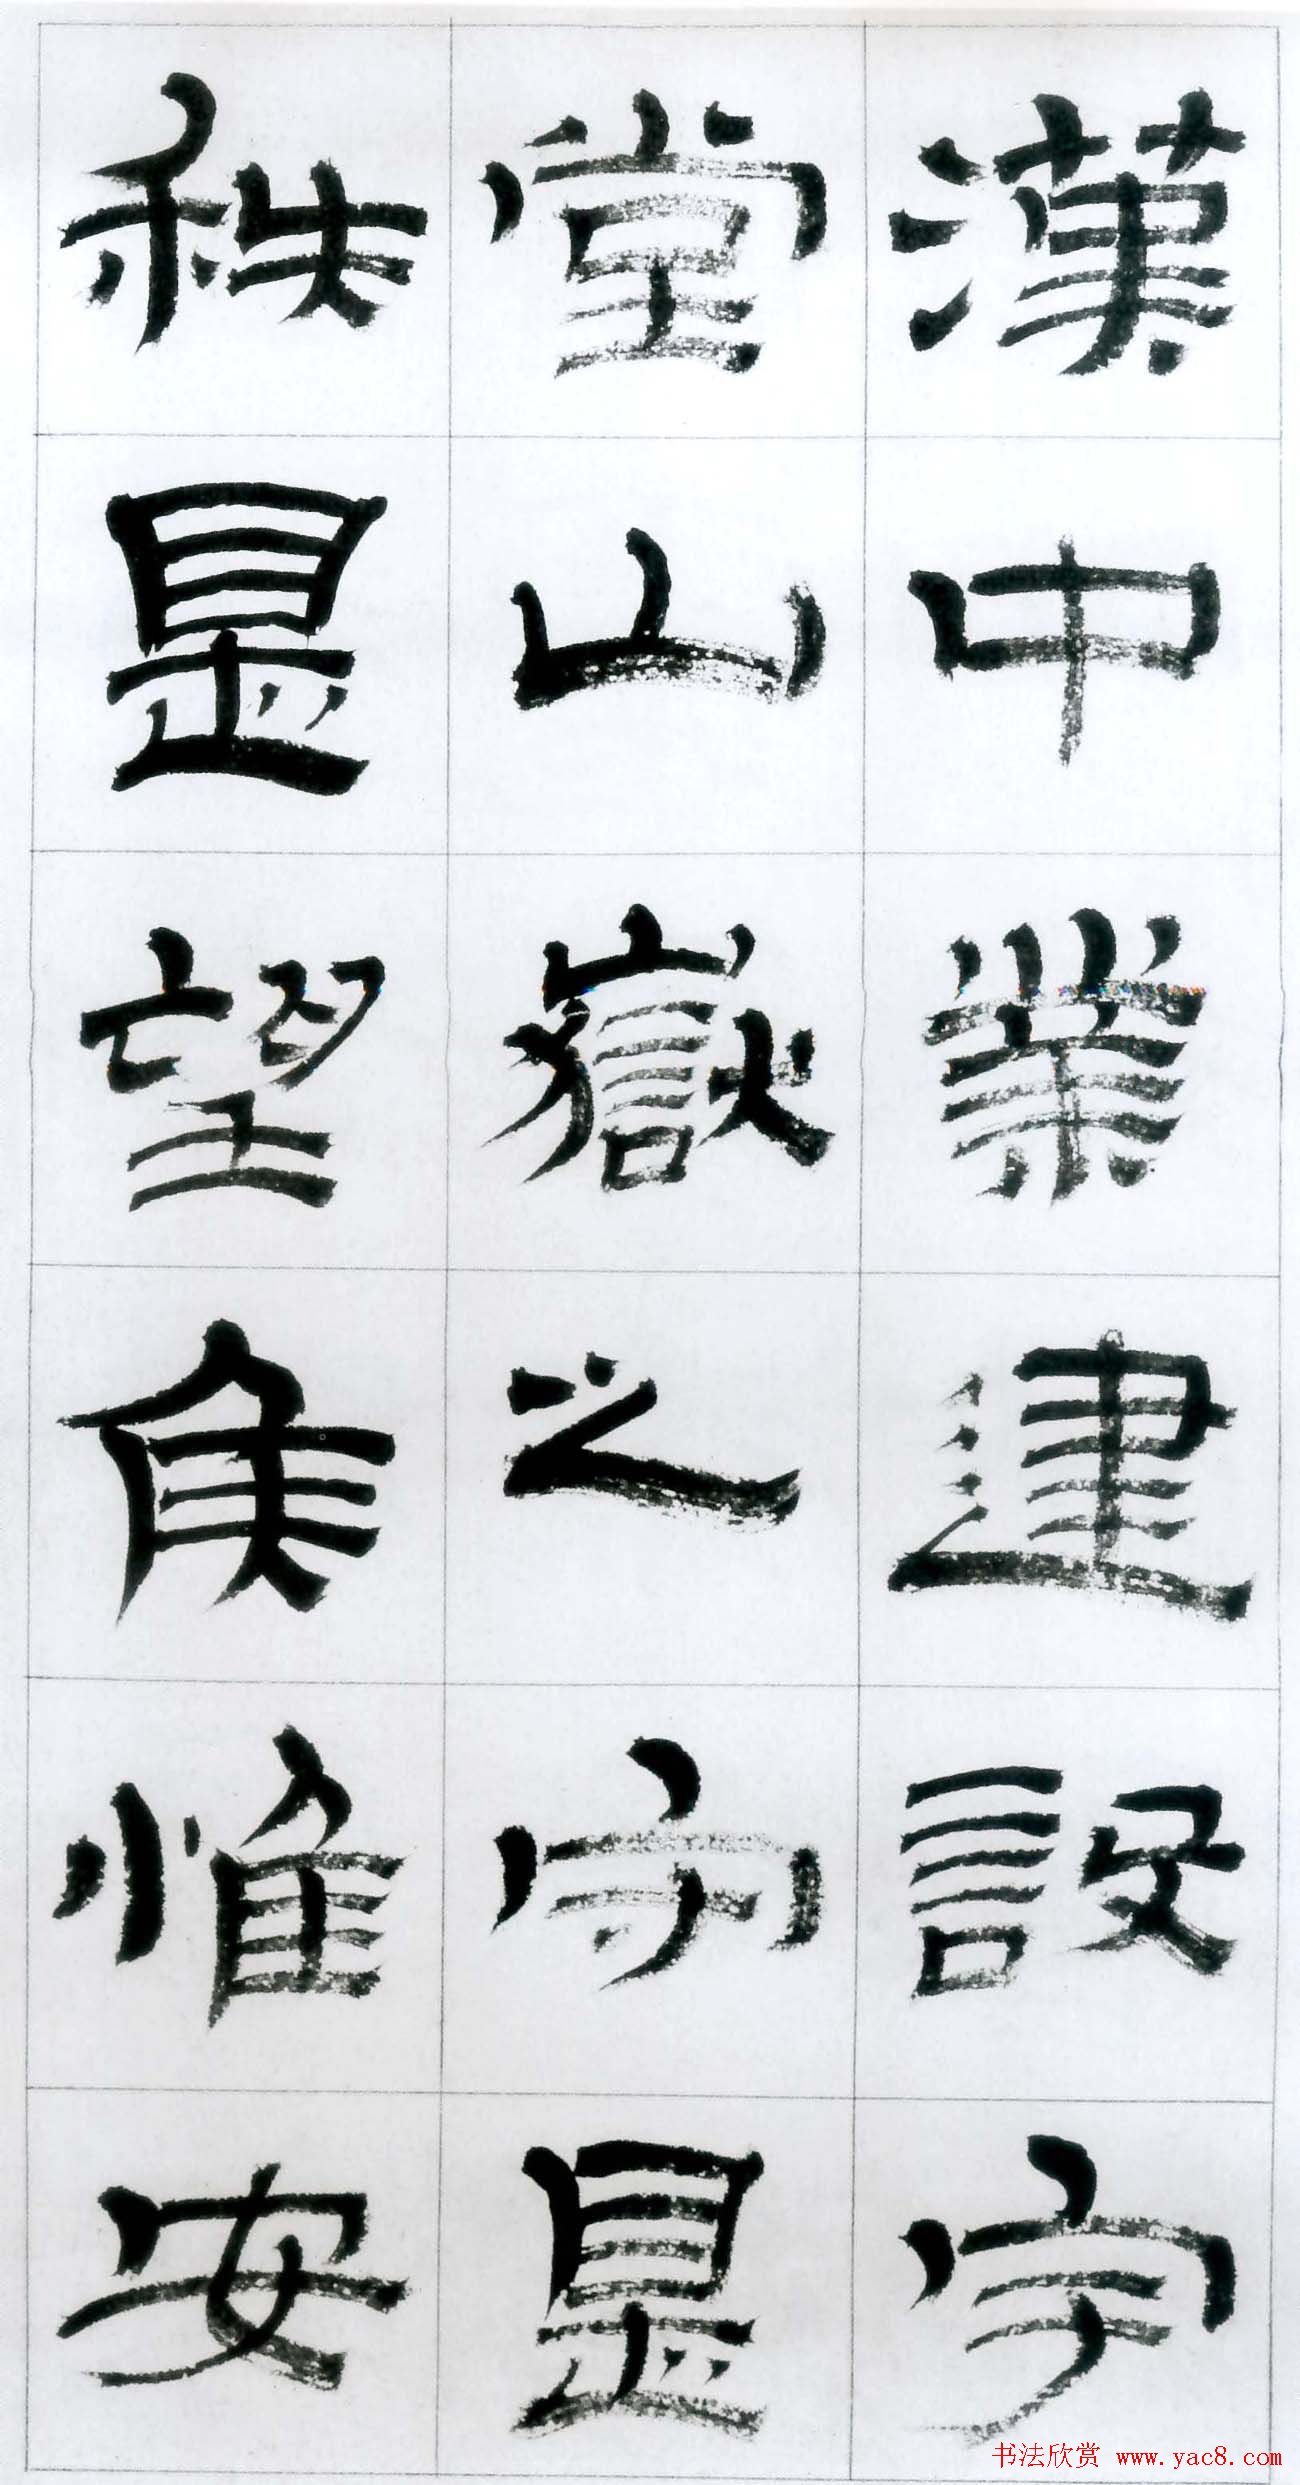 漢中業建設宇
堂山嶽之守是
秩是望侯惟安
书法欣赏 www.yac8.com